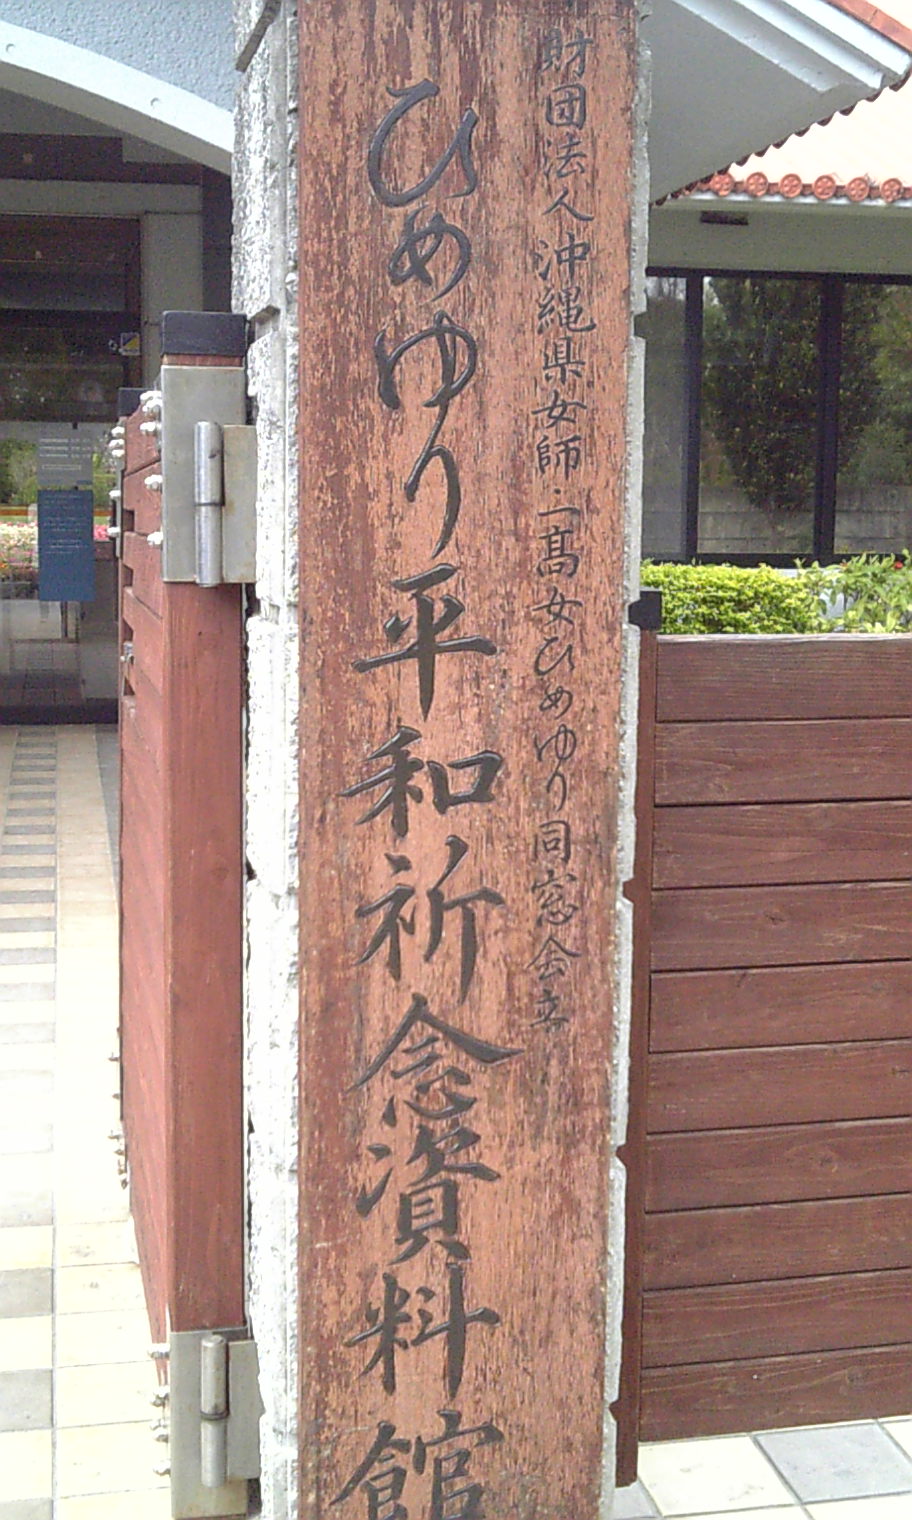 財団法人沖縄県女師・一高女ひめゆり同窓会立
ひめゆり平和祈念資料館